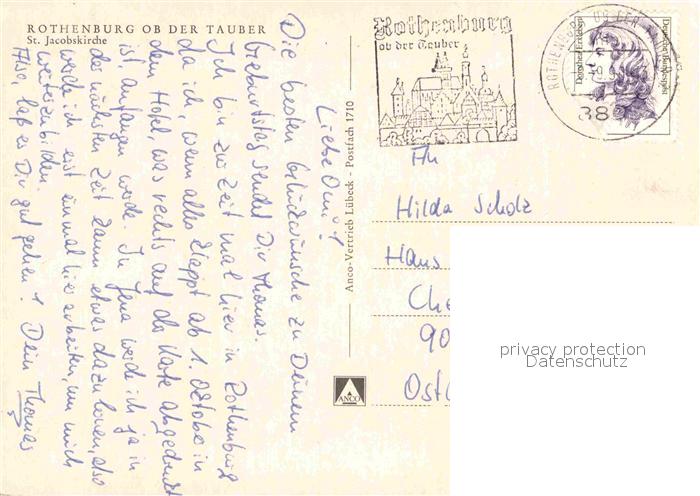 ROTHENBURG OB DER TAUBER
St. Jacobskirche
Liebe Omi!
Die besten Glückwünsche zu Deinem
Geburtstag sendet Dir Thomas.
Ich bin zur Zeit mal hier in Rothenburg
da ich, wenn alles klappt ab 1. Oktober in
dem Hotel, was rechts auf der Karte abgedruckt
ist, anfangen werde. In Jena werde ich ja in
der nächsten Zeit dann etwas dazu lernen, also
werde ich erst einmal hier arbeiten, um mich
weiterzubilden.
Also, laß es Dir gut gehen! Dein Thomas
Anco-Vertrieb Lübeck - Postfach 1710
ANCO
Rothenburg
ob der Tauber
ROTHENBURG OB DER
Dorothea Erxleben
Deutsche Bundespost
An
Hilda Scholz
Hans
Che
90
Ost
privacy protection
Datenschutz